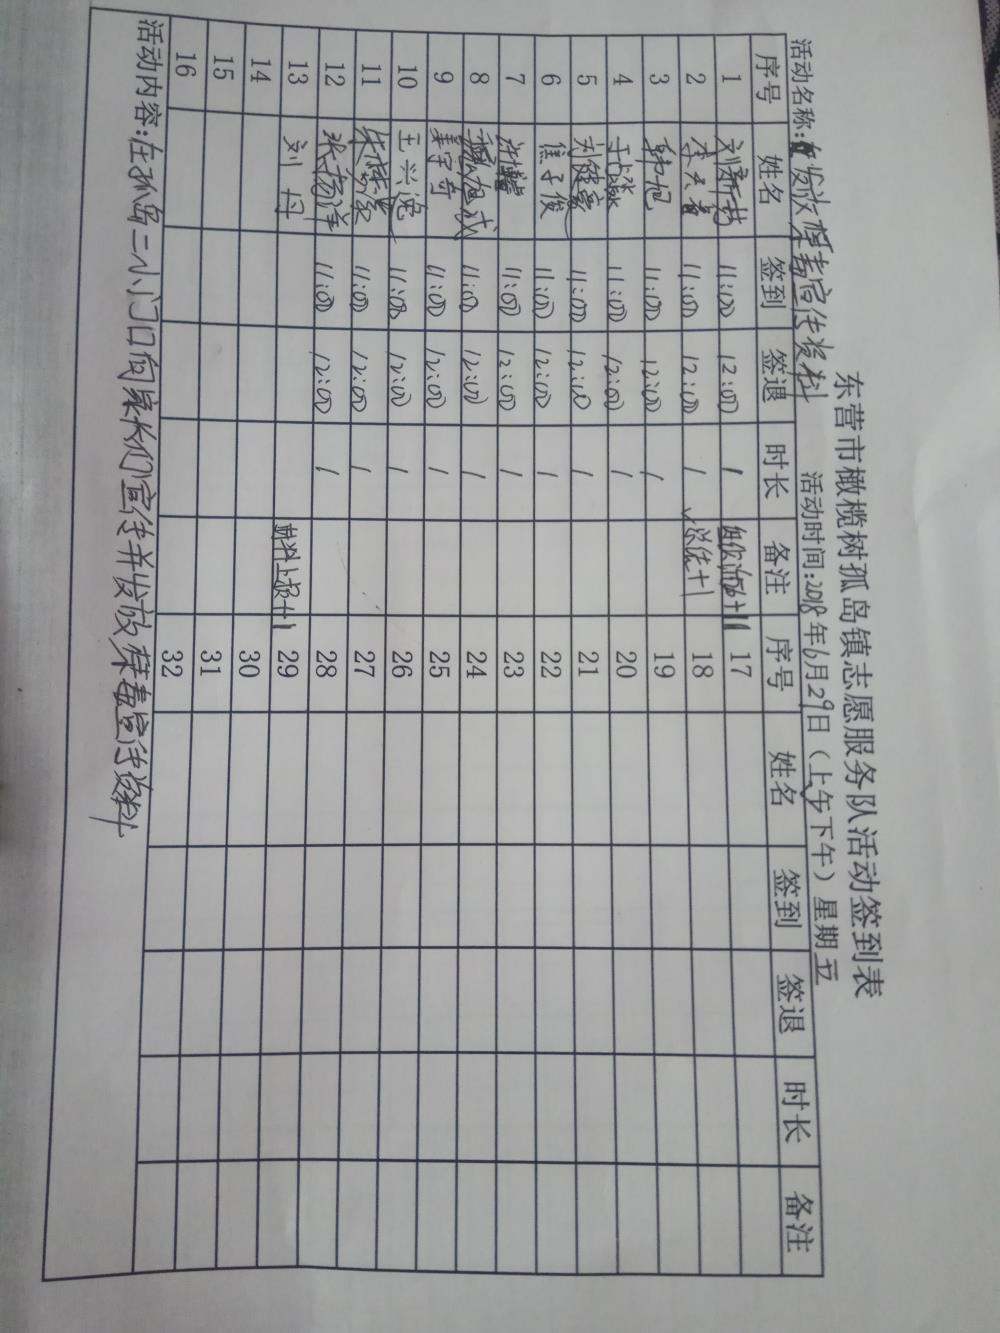 东营市橄榄树孤岛镇志愿服务队活动签到表
活动名称:发放禁毒宣传资料 活动时间:2018年6月29日(上午下午)星期五
序号 姓名 签到 签退 时长 备注 序号 姓名 签到 签退 时长 备注
1 11:00 12:00 1 17
2 11:00 12:00 1 总结+1 18
3 韩旭 11:00 12:00 1 19
4 11:00 12:00 1 20
5 刘健豪 11:00 12:00 1 21
6 焦子俊 11:00 12:00 1 22
7 11:00 12:00 1 23
8 魏旭武 11:00 12:00 1 24
9 姜宇奇 11:00 12:00 1 25
10 王兴逸 11:00 12:00 1 26
11 11:00 12:00 1 27
12 张扬洋 11:00 12:00 1 28
13 刘丹 材料上报+1 29
14 30
15 31
16 32
活动内容:在孤岛二小门口向家长们宣传并发放禁毒宣传资料